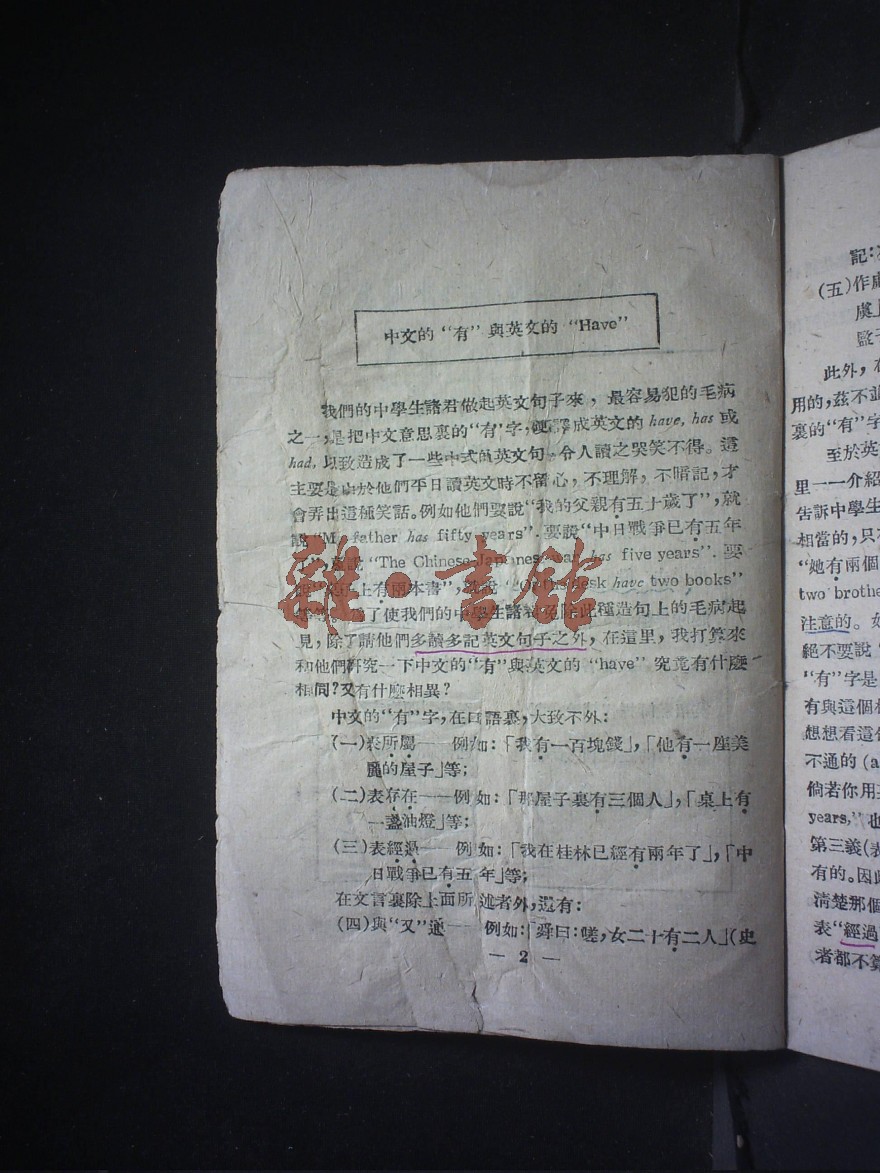 中文的 “有” 與英文的 “Have”
我們的中學生諸君做起英文句子來，最容易犯的毛病
之一，是把中文意思裏的“有”字，便譯成英文的 have, has 或
had, 以致造成了一些中式的英文句，令人讀之哭笑不得。這
主要是由於他們平日讀英文時不留心，不理解，不暗記，才
會弄出這種笑話。例如他們要說“我的父親有五十歲了”，就
說“My father has fifty years”. 要說“中日戰爭已有五年
了”，說 “The Chinese-Japanese war has five years”. 要
上有兩本書”，就說 “On the desk have two books”
了使我們的中學生諸君免除此種造句上的毛病起
見，除了請他們多讀多記英文句子之外，在這里，我打算來
和他們研究一下中文的“有”與英文的 “have” 究竟有什麼
相同？又有什麼相異？
中文的“有”字，在口語裏，大致不外：
(一)表所屬——例如：「我有一百塊錢」，「他有一座美
麗的屋子」等；
(二)表存在——例如：「那屋子裏有三個人」，「桌上有
一盞油燈」等；
(三)表經過——例如：「我在桂林已經有兩年了」，「中
日戰爭已有五年」等；
在文言裏除上面所述者外，還有：
(四)與“又”通——例如：「舜曰：嗟，女二十有二人」(史
— 2 —
雜·書館
記：
(五)作
虞上
監
此外，
用的，茲不
裏的“有”字
至於英
里一一介紹
告訴中學生
相當的，只
“她有兩個
two brothe
注意的。
絕不要說
“有”字是
有與這個
想想看這
不通的 (a
倘若你用
years,” 也
第三義(表
有的。因此
清楚那個
表“經過
者都不算